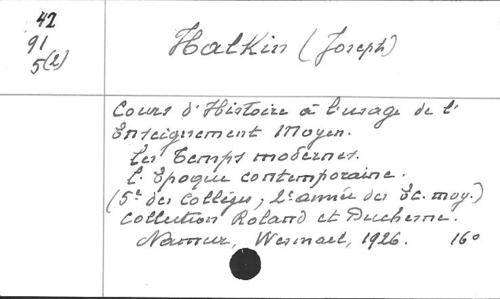 42
91
5(2)
Halkin (Joseph)
Cours d'Histoire à l'usage de l'
Enseignement Moyen.
Les Temps modernes.
L'Epoque contemporaine.
(5e des Collèges, 2e année des Ec. moy.)
Collection Roland et Duchesne.
Namur, Wesmael, 1926. 16°